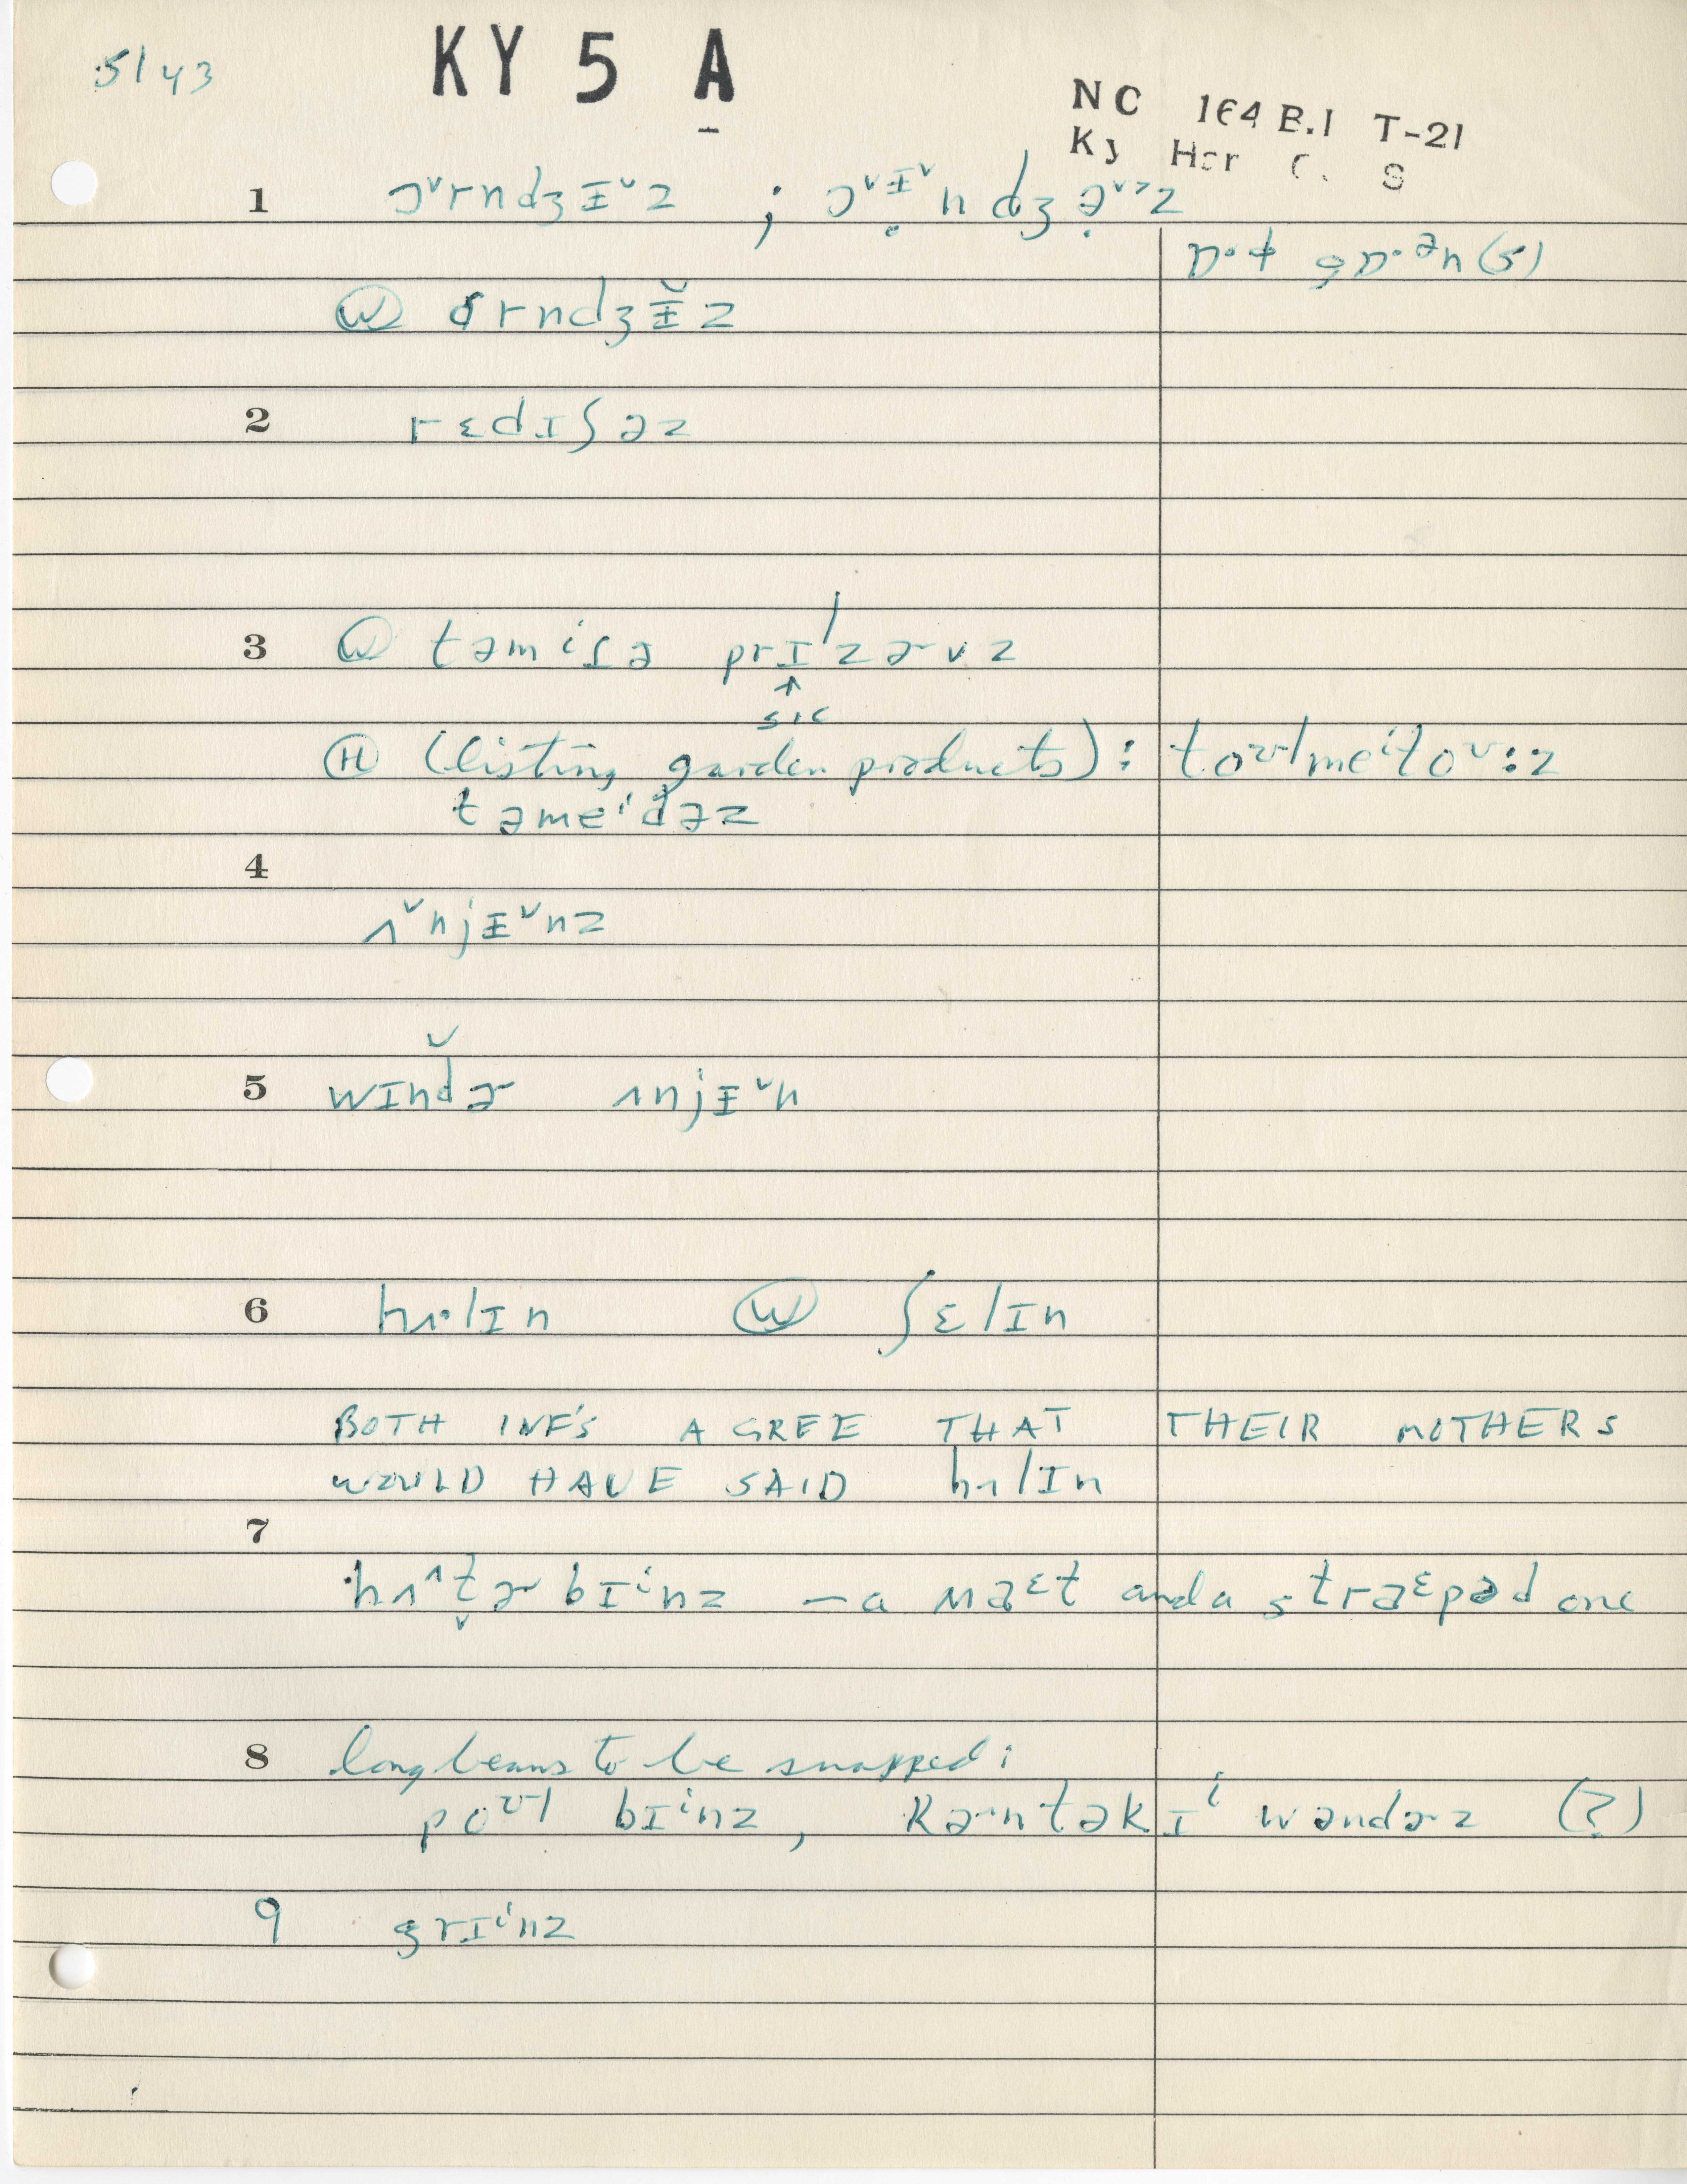 5/43
KY 5 A
NC 164 B.1 T-21
Ky
1 ɔ˅rndʒɪ̵˅z ; ɔ˅ɪ̵˅ndʒə˅˃z
ɒ·ɫ gɒ·ᵊn(z)
Ⓦ ɔrndʒɪ̵̆z
2 rɛdɪʃəz
3 Ⓦ təmitə prɪ'zɚvz
↑
sic
Ⓗ (listing garden products): toᶷ|meⁱtoᶷ:z
təmeⁱd̆əz
4
ʌ˅njɪ̵˅nz
5 wɪnd̆ɚ ʌnjɪ̵˅n
6 hʌ·lɪn Ⓦ ʃɛlɪn
BOTH INF'S AGREE THAT THEIR MOTHERS
WOULD HAVE SAID hʌlɪn
7
hʌ˄t̬ɚ bɪⁱnz — a and a one
8 long beans to be snapped:
poᶷl bɪⁱnz, kɚntəkɪⁱ wəndɚz (?)
9 grɪⁱnz